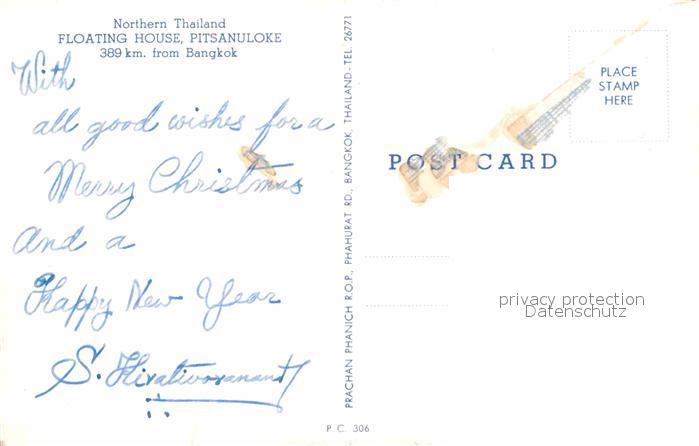 Northern Thailand
FLOATING HOUSE, PITSANULOKE
389 km. from Bangkok
With
all good wishes for a
Merry Christmas
And a
Happy New Year
S.
PRACHAN PHANICH R.O.P., PHAHURAT RD., BANGKOK, THAILAND.-TEL. 26771
P. C. 306
PLACE
STAMP
HERE
POST CARD
privacy protection
Datenschutz